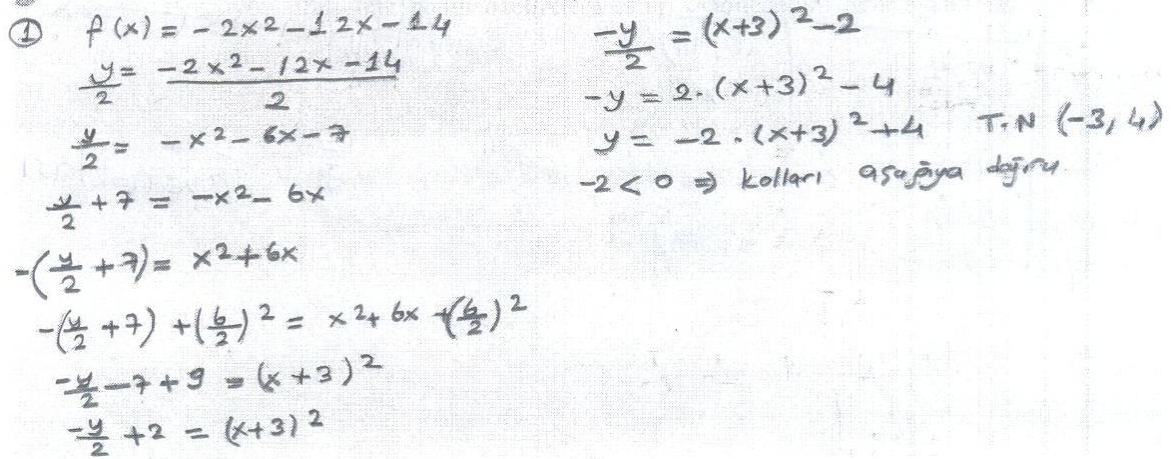 ① f(x) = -2x2 - 12x - 14
y/2 = (-2x2 - 12x - 14)/2
y/2 = -x2 - 6x - 7
y/2 + 7 = -x2 - 6x
-(y/2 + 7) = x2 + 6x
-(y/2 + 7) + (6/2)2 = x2 + 6x + (6/2)2
-y/2 - 7 + 9 = (x+3)2
-y/2 + 2 = (x+3)2
-y/2 = (x+3)2 - 2
-y = 2. (x+3)2 - 4
y = -2 . (x+3)2 + 4 T.N (-3, 4)
-2 < 0 ⇒ kolları aşağıya doğru.